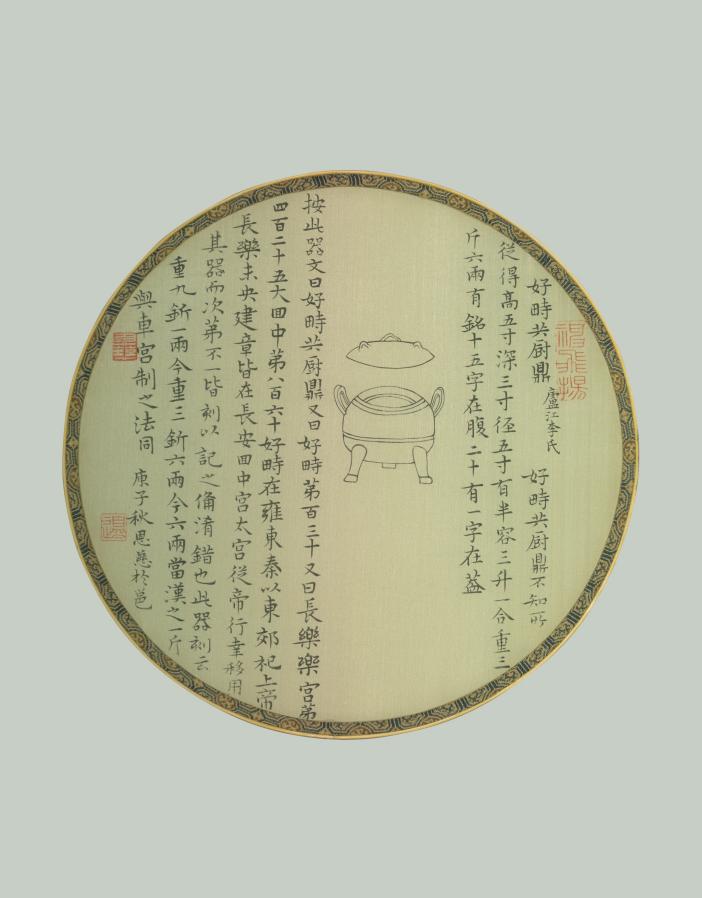 好畤共厨鼎 盧江李氏 好畤共厨鼎不知所
從得高五寸深三寸径五寸有半容三升一合重三
斤六兩有銘十五字在腹二十有一字在盖
按此器文曰好畤共厨鼎又曰好畤第百三十又曰長樂樂宮第
四百二十五大回中第八百六十好畤在雍東秦以東郊祀上帝
長樂未央建章皆在長安回中宮太宮從帝行幸移用
其器而次第不一皆刻以記之俻淆錯也此器刻云
重九斱一兩今重三斱六兩今六兩當漢之一斤
與車宮制之法同 庚子秋思慈於邕